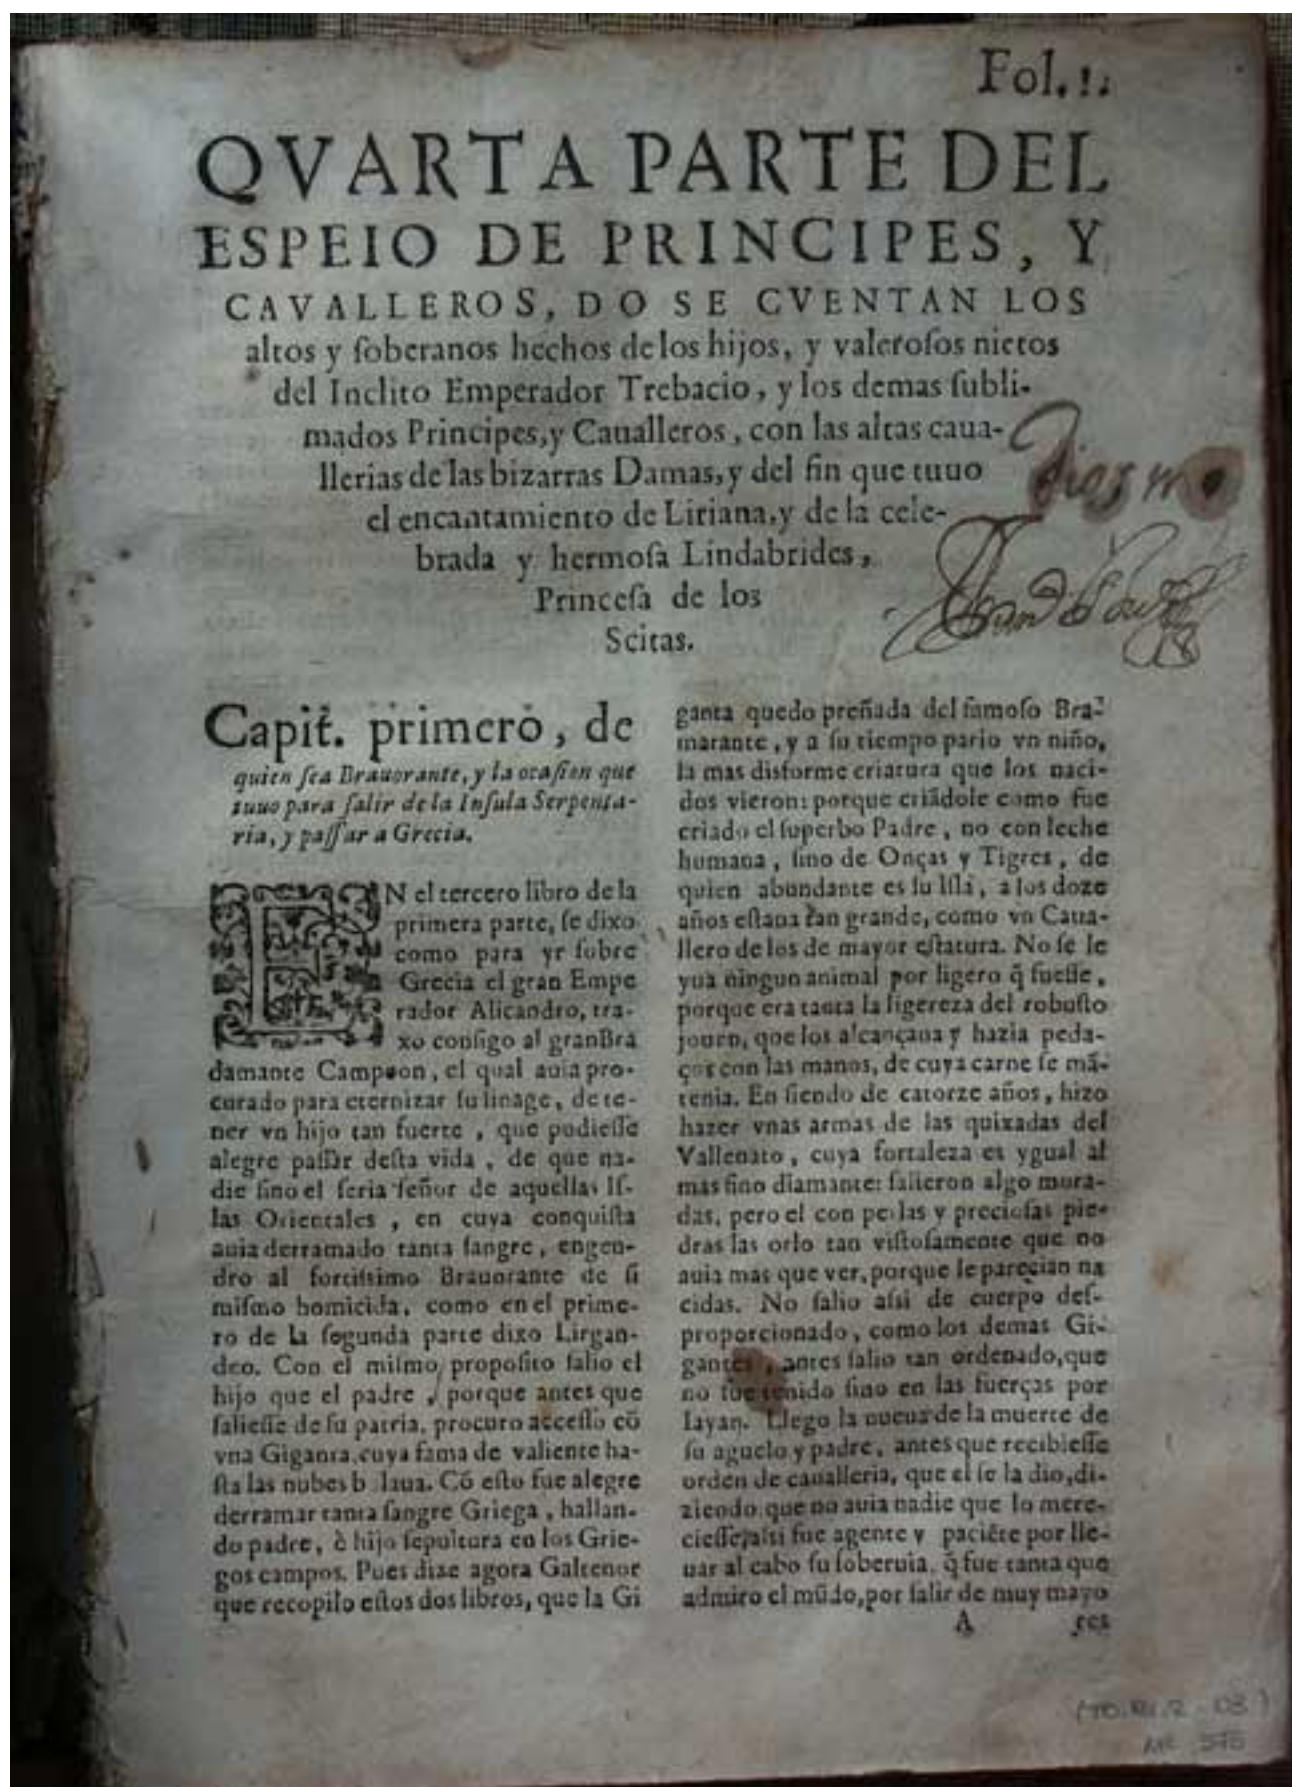 Fol. 1.
QVARTA PARTE DEL
ESPEIO DE PRINCIPES, Y
CAVALLEROS, DO SE CVENTAN LOS
altos y ſoberanos hechos de los hijos, y valeroſos nietos
del Inclito Emperador Trebacio, y los demas ſubli-
mados Principes, y Caualleros, con las altas caua-
llerias de las bizarras Damas, y del fin que tuuo
el encantamiento de Liriana, y de la cele-
brada y hermoſa Lindabrides,
Princeſa de los
Scitas.
Capit. primero, de
quien ſea Brauorante, y la ocaſion que
tuuo para ſalir de la Inſula Serpenta-
ria, y paſſar a Grecia.
EN el tercero libro de la
primera parte, ſe dixo
como para yr ſobre
Grecia el gran Empe
rador Alicandro, tra-
xo conſigo al gran Bra
damante Campeon, el qual auia pro-
curado para eternizar ſu linage, de te-
ner vn hijo tan fuerte, que pudieſſe
alegre paſſar deſta vida, de que na-
die ſino el ſeria ſeñor de aquellas Iſ-
las Orientales, en cuya conquiſta
auia derramado tanta ſangre, engen-
dro al fortiſsimo Brauorante de ſi
miſmo homicida, como en el prime-
ro de la ſegunda parte dixo Lirgan-
deo. Con el miſmo propoſito ſalio el
hijo que el padre, porque antes que
ſalieſſe de ſu patria, procuro acceſſo cō
vna Giganta, cuya fama de valiente ha-
ſta las nubes b laua. Cō eſto fue alegre
derramar tanta ſangre Griega, hallan-
do padre, ò hijo ſepultura en los Grie-
gos campos. Pues dize agora Galtenor
que recopilo eſtos dos libros, que la Gi
ganta quedo preñada del famoſo Bra-
marante, y a ſu tiempo pario vn niño,
la mas disforme criatura que los naci-
dos vieron: porque criādole como fue
criado el ſuperbo Padre, no con leche
humana, ſino de Onças y Tigres, de
quien abundante es ſu Iſla, a los doze
años eſtaua tan grande, como vn Caua-
llero de los de mayor eſtatura. No ſe le
yua ningun animal por ligero q̃ fueſſe,
porque era tanta la ligereza del robuſto
jouen, que los alcançaua y hazia peda-
ços con las manos, de cuya carne ſe mā-
tenia. En ſiendo de catorze años, hizo
hazer vnas armas de las quixadas del
Vallenato, cuya fortaleza es ygual al
mas fino diamante: ſalieron algo mora-
das, pero el con perlas y precioſas pie-
dras las orlo tan viſtoſamente que no
auia mas que ver, porque le parecian na
cidas. No ſalio aſsi de cuerpo deſ-
proporcionado, como los demas Gi-
gantes, antes ſalio tan ordenado, que
no fue tenido ſino en las fuerças por
Iayan. Llego la nueua de la muerte de
ſu aguelo y padre, antes que recibieſſe
orden de caualleria, que el ſe la dio, di-
ziendo que no auia nadie que lo mere-
cieſſe, aſsi fue agente y paciēte por lle-
uar al cabo ſu ſoberuia, q̃ fue tanta que
admiro el mūdo, por ſalir de muy mayo
A res